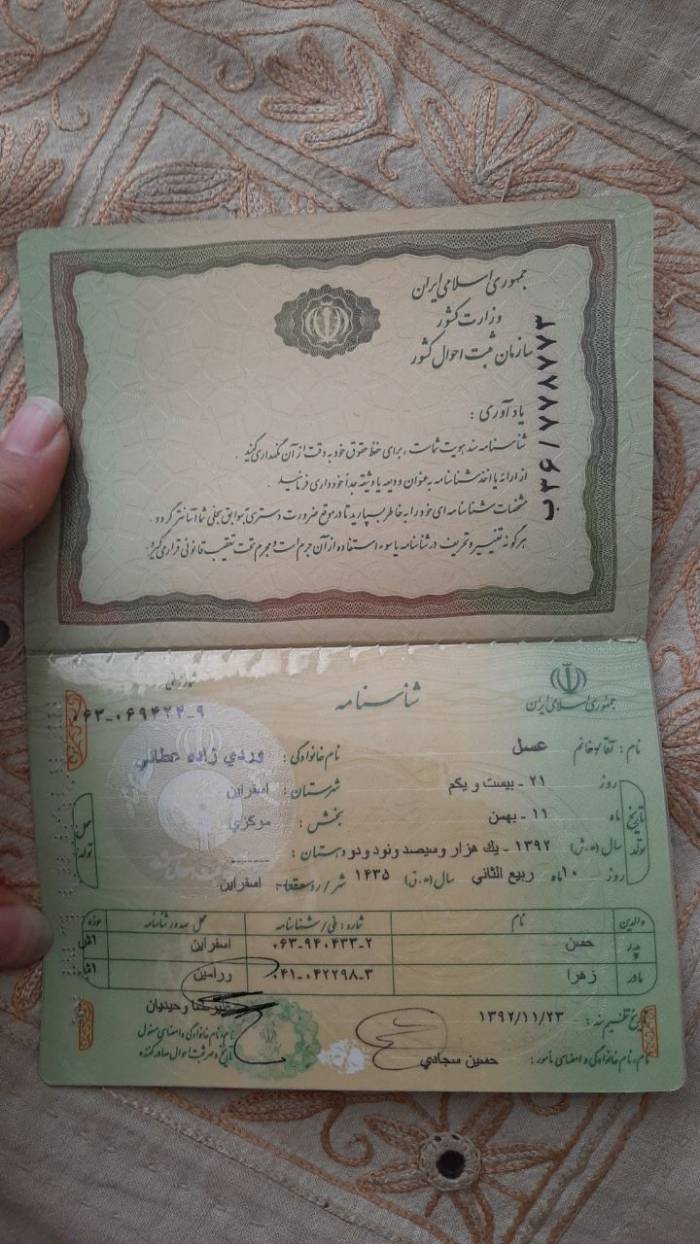 جمهوری اسلامی ایران
وزارت کشور
سازمان ثبت احوال کشور
ب۳۶/۷۷۸۷۷۳
یادآوری :
شناسنامه سند هویت شماست ، برای حفظ حقوق خود به دقت از آن نگهداری کنید .
از ارائه یا اخذ شناسنامه به عنوان ودیعه یا وثیقه جداً خودداری فرمائید .
مشخصات شناسنامه ای خود را به خاطر بسپارید تا در موقع ضرورت دسترسی به سوابق سجلی شما آسانتر گردد .
هرگونه تغییر و تحریف در شناسنامه یا سوء استفاده از آن جرم است و مجرم تحت تعقیب قانونی قرار می گیرد .
جمهوری اسلامی ایران
شناسنامه
شماره ملی
۰۶۳-۰۶۹۴۲۴-۹
نام : آقا/خانم عسل نام خانوادگی : وردي زاده عطائي
تاریخ تولد
روز ۲۱ - بیست و یکم شهرستان : اسفراین
ماه ۱۱ - بهمن بخش : مرکزي
سال (ه.ش) ۱۳۹۲ - یك هزار وسیصد ونود ودو دهستان : ــــــ
روز ۱۰ ماه ربیع الثاني سال (ه.ق) ۱۴۳۵ شهر/روستا : اسفراین
محل تولد
والدین نام شماره : ملی / شناسنامه محل صدور شناسنامه حوزه
پدر حسن ۰۶۳-۹۴۰۴۳۳-۲ اسفراین
مادر زهرا ۰۴۱-۰۴۲۲۹۸-۳ ورامین
تاریخ تنظیم سند : ۱۳۹۲/۱۱/۲۳ علیرضا وحیدیان
نام، نام خانوادگی و امضای مسئول
نام، نام خانوادگی و امضای مامور : حسین سجادي تاریخ و مهر ثبت احوال صادر کننده